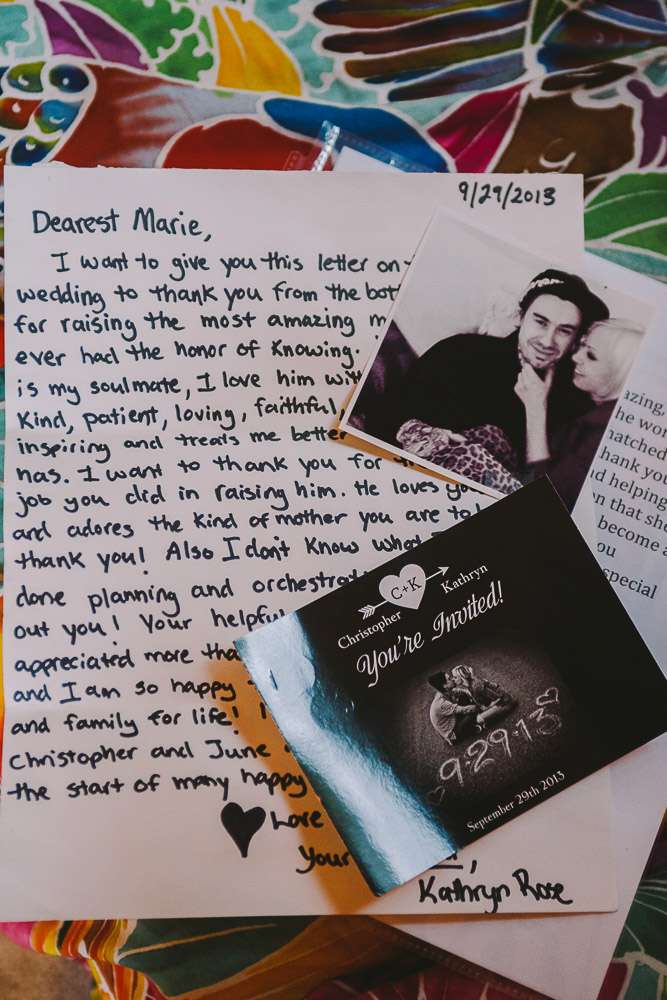 9/29/2013
Dearest Marie,
I want to give you this letter on
wedding to thank you from the bot
for raising the most amazing m
ever had the honor of knowing.
is my soulmate, I love him wit
kind, patient, loving, faithful,
inspiring and treats me better
has. I want to thank you for
job you did in raising him. He loves yo
and adores the kind of mother you are to
thank you! Also I don't know what
done planning and orchestrat
out you! Your helpfu
appreciated more tha
and I am so happy
and family for life!
Christopher and June
the start of many happy
Love
Your
Kathryn Rose
C+K
Christopher
Kathryn
You're Invited!
9·29·13
September 29th 2013
azing
he wo
natched
hank you
d helping
n that she
become a
ou
special